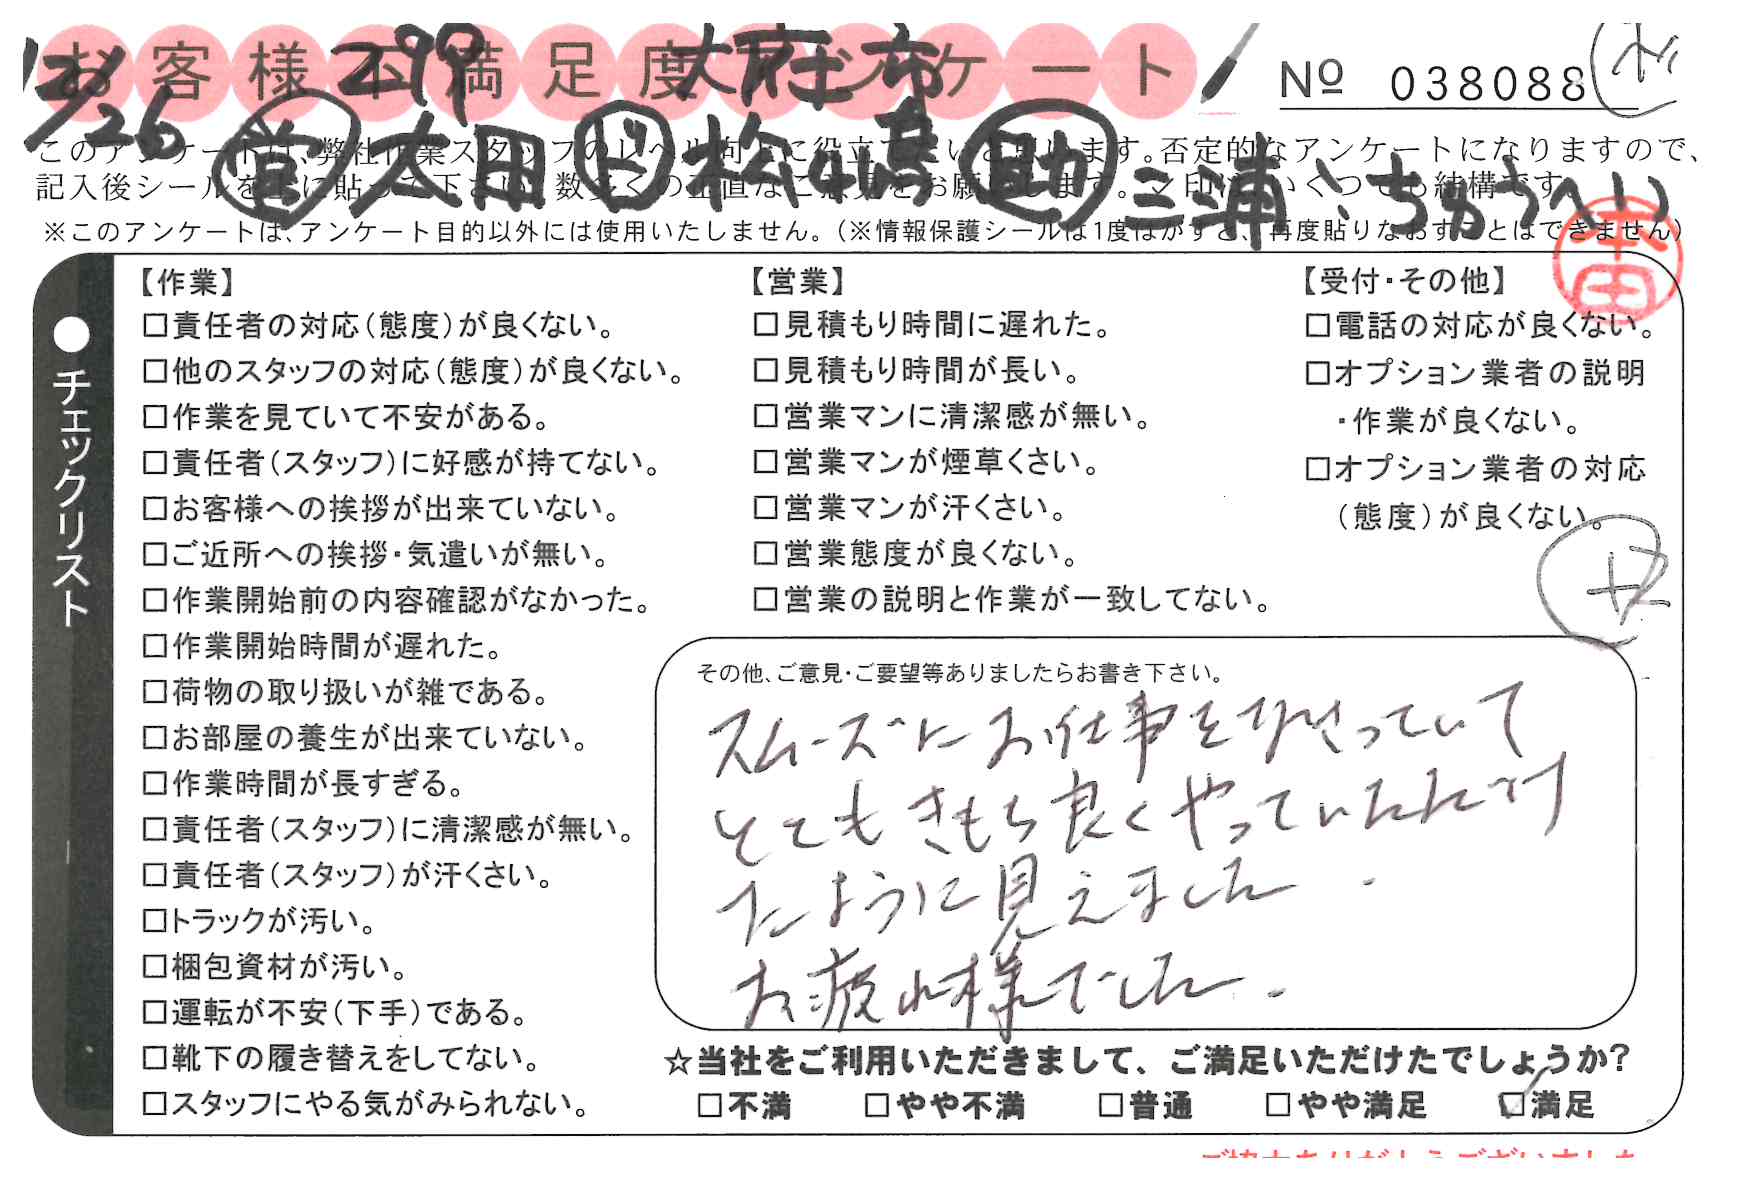 お客様不満足度アンケート
12/26 299 大府市
№ 038088
営 太田 ド 松嶋 助 三浦、ちゅうへい
このアンケートは、弊社作業スタッフのレベル向上に役立てたいと思います。否定的なアンケートになりますので、
記入後シールを上に貼って下さい。数多くの正直なご意見をお願いします。文印は、いくつでも結構です。
※このアンケートは、アンケート目的以外には使用いたしません。（※情報保護シールは1度はがすと、再度貼りなおすことはできません）
本田
●チェックリスト
【作業】
□責任者の対応（態度）が良くない。
□他のスタッフの対応（態度）が良くない。
□作業を見ていて不安がある。
□責任者（スタッフ）に好感が持てない。
□お客様への挨拶が出来ていない。
□ご近所への挨拶・気遣いが無い。
□作業開始前の内容確認がなかった。
□作業開始時間が遅れた。
□荷物の取り扱いが雑である。
□お部屋の養生が出来ていない。
□作業時間が長すぎる。
□責任者（スタッフ）に清潔感が無い。
□責任者（スタッフ）が汗くさい。
□トラックが汚い。
□梱包資材が汚い。
□運転が不安（下手）である。
□靴下の履き替えをしてない。
□スタッフにやる気がみられない。
【営業】
□見積もり時間に遅れた。
□見積もり時間が長い。
□営業マンに清潔感が無い。
□営業マンが煙草くさい。
□営業マンが汗くさい。
□営業態度が良くない。
□営業の説明と作業が一致してない。
【受付・その他】
□電話の対応が良くない。
□オプション業者の説明
・作業が良くない。
□オプション業者の対応
（態度）が良くない。
その他、ご意見・ご要望等ありましたらお書き下さい。
スムーズにお仕事をなさっていて
とてもきもち良くやっていただけ
たように見えました.
お疲れ様でした.
☆当社をご利用いただきまして、ご満足いただけたでしょうか?
□不満 □やや不満 □普通 □やや満足 ☑満足
ご協力ありがとうございました